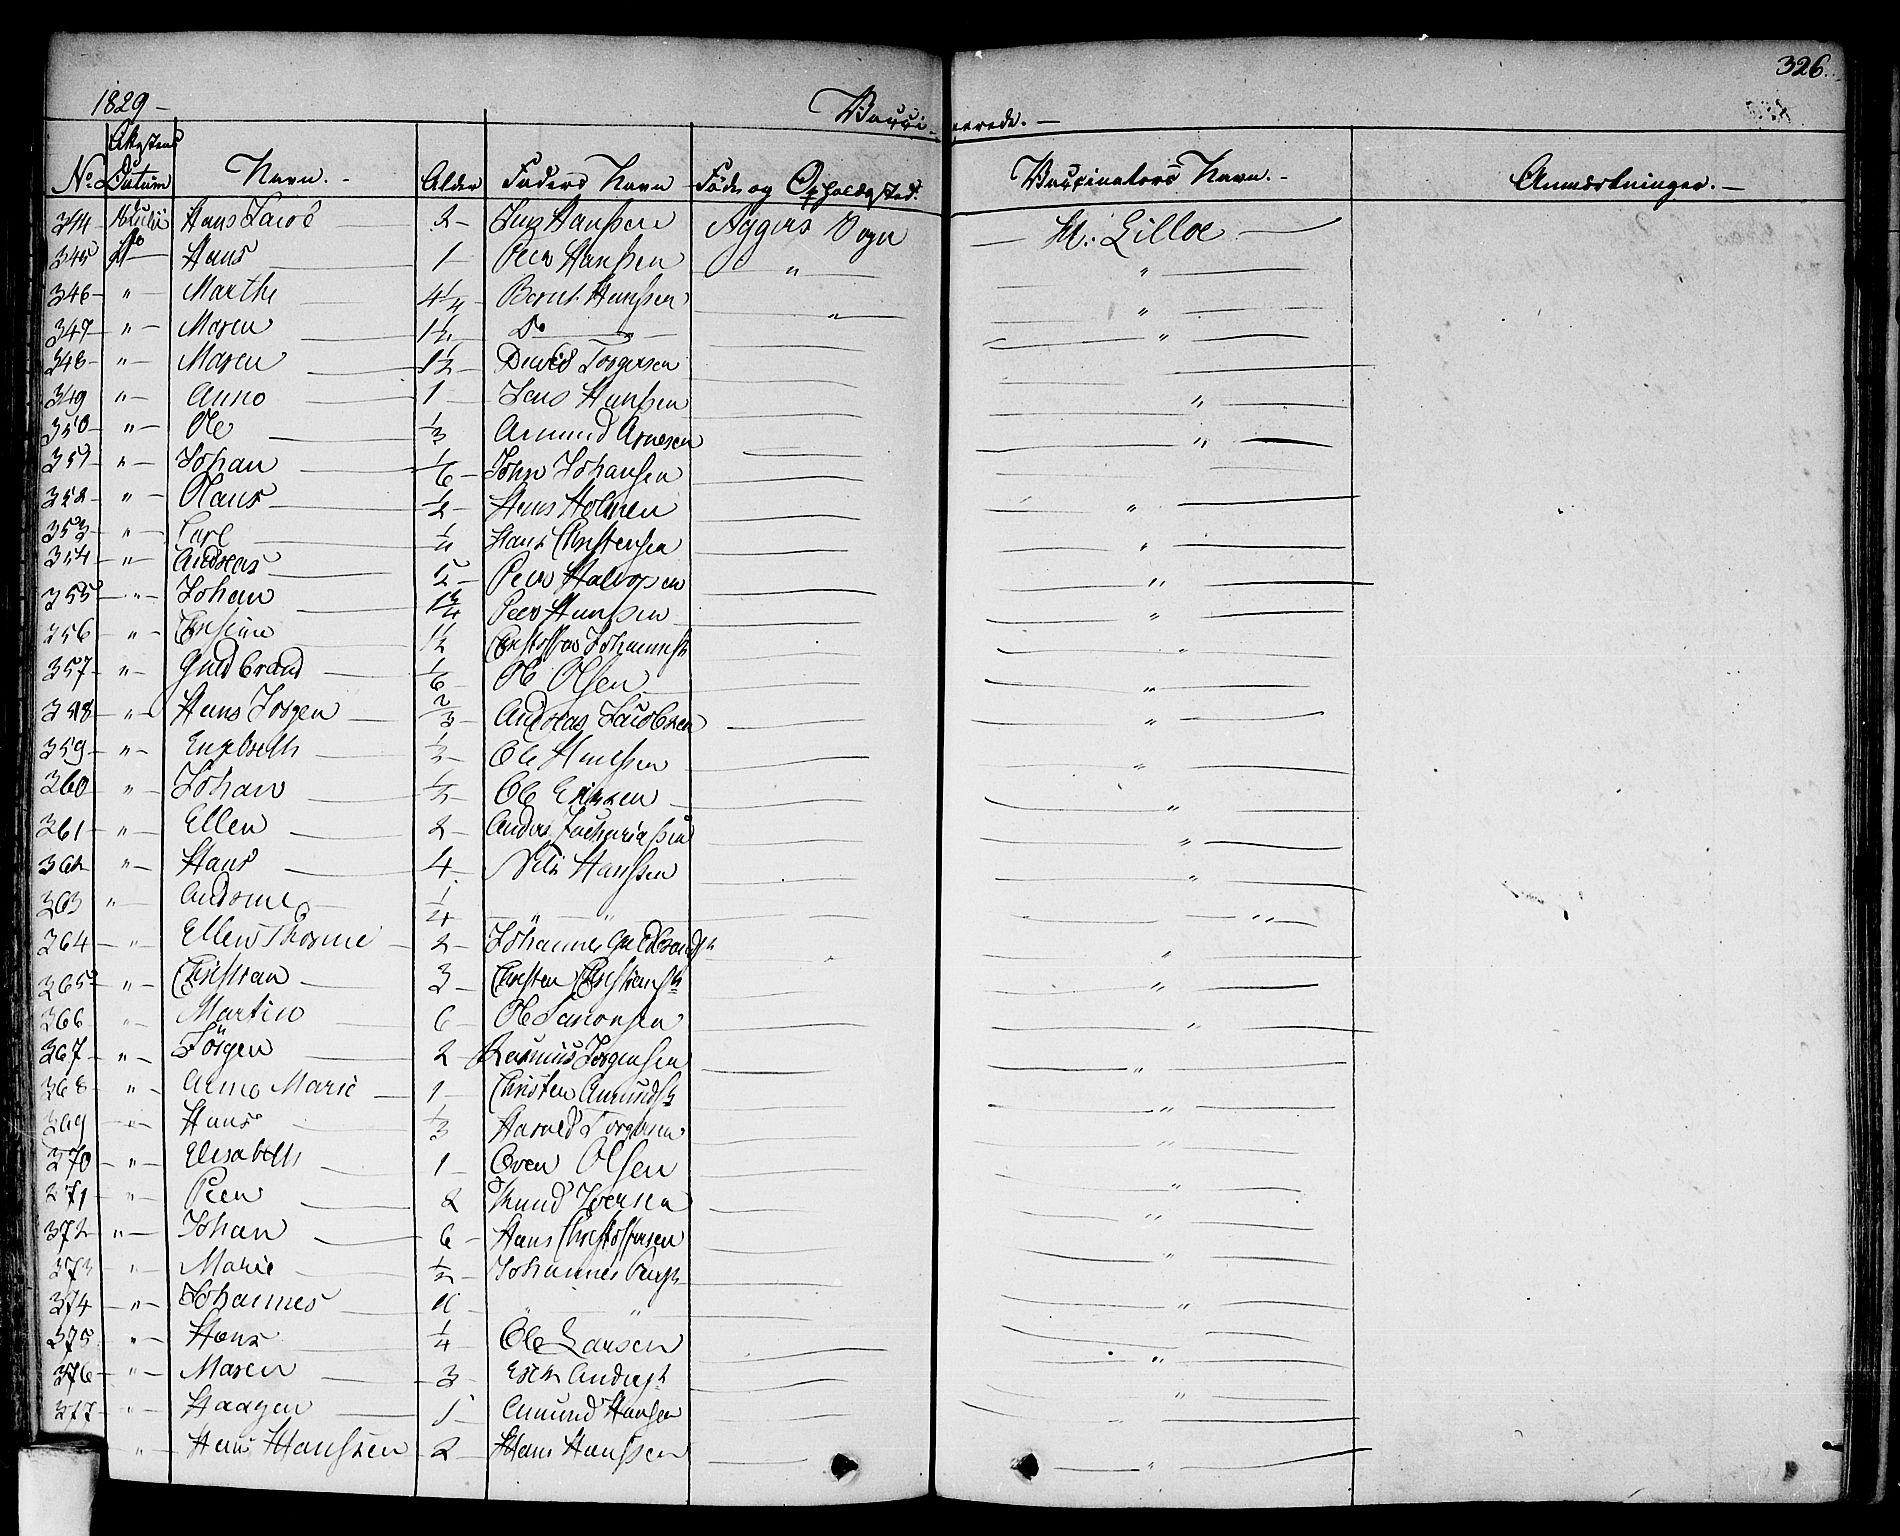 326.
1829 —
Vacci- nerede. —
No. Attestens Datum Navn. — Alder Faders Navn Føde og Opholdsted. Vaccinators Navn. — Anmærkninger. —
344 Julii Hans Jacob 2 — Jens Hanssen Aggers Sogn — M. Lilloe. —
345 Do — Hans 1 — Peer Hanssen " "
346 — " — Marthe 4 1/4 — Bernt Hanssen " "
347 — " — Maren 1 1/2 — Do — "
348 — " — Maren 1 1/2 — David Torgersen
349 " — Anne 1 — Jens Hanssen "
350 — " — Ole 1/3 Amund Arnesen "
351 — " — Johan 1/6 — John Johansen
352 — " — Hans 1/2 — Hans Holmen "
353 — " — Carl 1/4 Hans Christensen "
354 — " — Andreas 1/2 — Peer Halvorsen "
355 — " — Johan 1 3/4 Peer Hanssen "
356 " — Christine 1 1/2 Christoffer Johannesn "
357 — " — Guldbrand 1/6 — Ole Olsen "
358 — " — Hans Jørgen 2/3 — Andreas Jacobsen "
359 — " — Engebreth 1/3 — Ole Hanssen "
360 " — Johan 1/2 — Ole Erichsen "
361 — " — Ellen 2 — Anders Zachariassen "
362 " — Hans 4 — Nils Hanssen "
363 " — Andrine 1/4 " " "
364 — " — Ellen Thorine 2 — Johannes Guldbrands. "
365 — " — Christian 3 — Christen Christians. "
366 " — Martin 6 — Ole Simonsen "
367 — " — Jørgen 2 Rasmus Jørgensen "
368 — " — Anne Marie 1 — Christen Amunds. "
369 — " — Hans 1/3 Harald Torgersen "
370 — " — Elisabeth 1 — Even Olsen "
371 " — Peer 2 Knud Iversen "
372 — " — Johan 6 — Hans Christoffersen "
373 " — Marie 1/2 — Johannes "
374 — " — Johannes " " "
375 " — Hans 1/4 — Ole Larsen "
376 — " — Maren 3 — Erik Anders. "
377 " — Haagen 1 Amund Hansen "
" — Hans Hanssen 2 — Hans Hanssen "